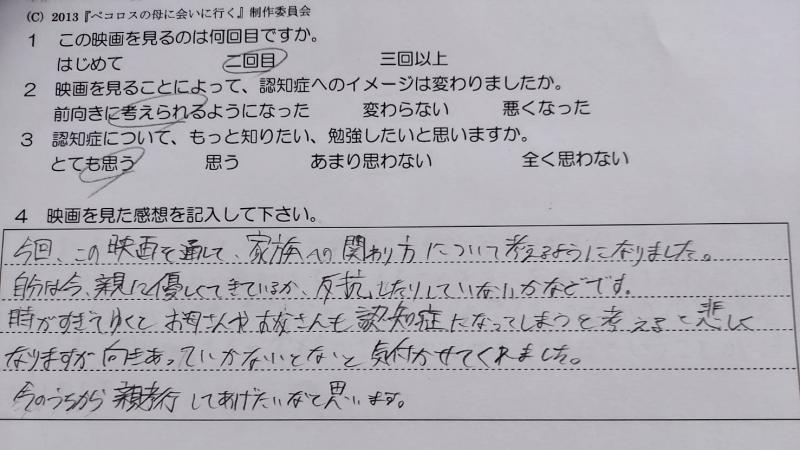 (C) 2013『ペコロスの母に会いに行く』制作委員会
1 この映画を見るのは何回目ですか。
はじめて 二回目 三回以上
2 映画を見ることによって、認知症へのイメージは変わりましたか。
前向きに考えられるようになった 変わらない 悪くなった
3 認知症について、もっと知りたい、勉強したいと思いますか。
とても思う 思う あまり思わない 全く思わない
4 映画を見た感想を記入して下さい。
今回、この映画を通して、家族への関わり方について考えるようになりました。
自分は今、親に優しくできているか、反抗したりしていないかなどです。
時がすぎてゆくと、お母さんやお父さんも認知症になってしまうと考えると悲しく
なりますが向きあっていかないとないと気付かせてくれました。
今のうちから親孝行してあげたいなと思います。